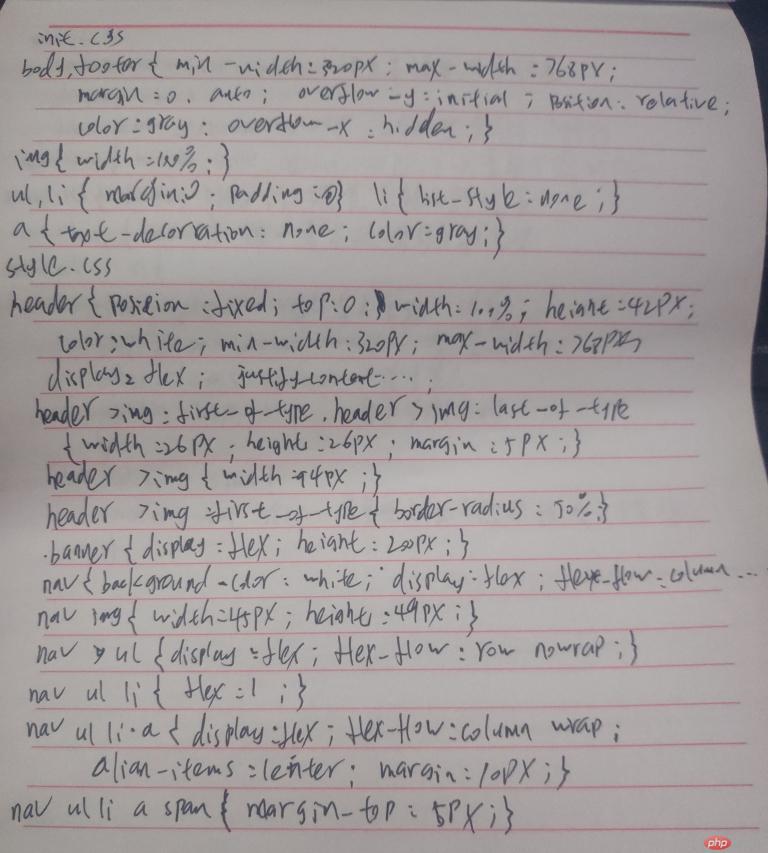 init.css
body,footer{ min-width:320px; max-width:768px;
margin:0. auto; overflow-y:initial; position:relative;
color:gray; overflow-x:hidden;}
img{ width:100%;}
ul,li{ margin:0; padding:0} li{ list-style:none;}
a{ text-decorration: none; color:gray;}
style.css
header{ position:fixed; top:0; width:100%; height:42px;
color:white; min-width:320px; max-width:768px;
display: flex; justify-content....;
header >img:first-of-type.header >img:last-of-type
{ width:26px; height:26px; margin:5px;}
header >img{ width:94px;}
header >img:first-of-type{ border-radius: 50%;}
.banner{ display:flex; height:200px;}
nav{ background-color: white; display:flex; flex-flow:column...
nav img{ width:45px; height:49px;}
nav > ul {display:flex; flex-flow: row nowrap;}
nav ul li{ flex:1 ;}
nav ul li.a{ display:flex; flex-flow:column wrap;
alian-items:center; margin:10px;}
nav ul li a span{ margin-top: 5px;}
php